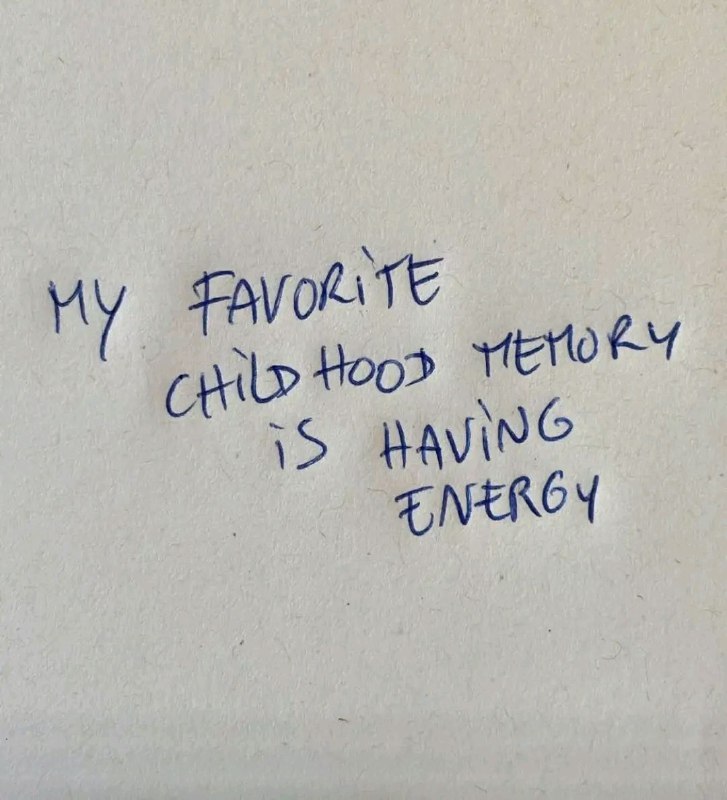 MY FAVORiTE
CHiLDHOOD MEMORY
iS HAViNG
ENERGY